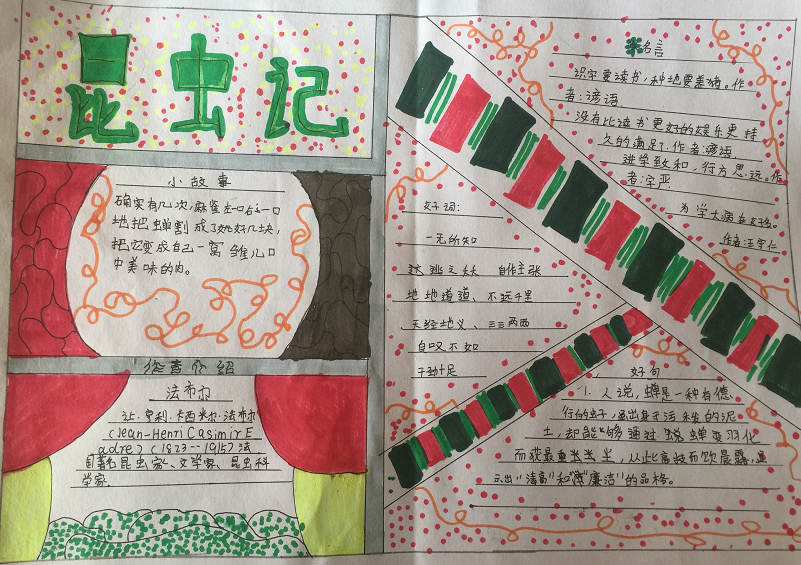 昆虫记
小故事
确实有几次,麻雀左一口右一口
地把蝉割成了好几块,
把它变成自己一窝雏儿口
中美味的肉。
作者介绍
法布尔
让·亨利·卡西米尔·法布尔
(Jean-Henri Casimir
(1823--1915)法
国著名昆虫家、文学家、昆虫科
学家
名言
识字要读书,种地要养猪。作
者:谚语
没有比读书更好的娱乐更持
久的满足了.作者:谚语
进学致和,行方思远。作
者:字严
为学大病在好名。
作者:王守仁
好词:
一无所知
逃之夭夭 自作主张
地地道道、不远千里
天经地义、三三两两
自叹不如
干劲十足
好句
1. 人说,蝉是一种有德
行的虫子,虽出身于污秽的泥
土,却能够通过蜕蝉变羽化
而获重生,从此高枝而饮晨露,显
示出"清高"和"廉洁"的品格。